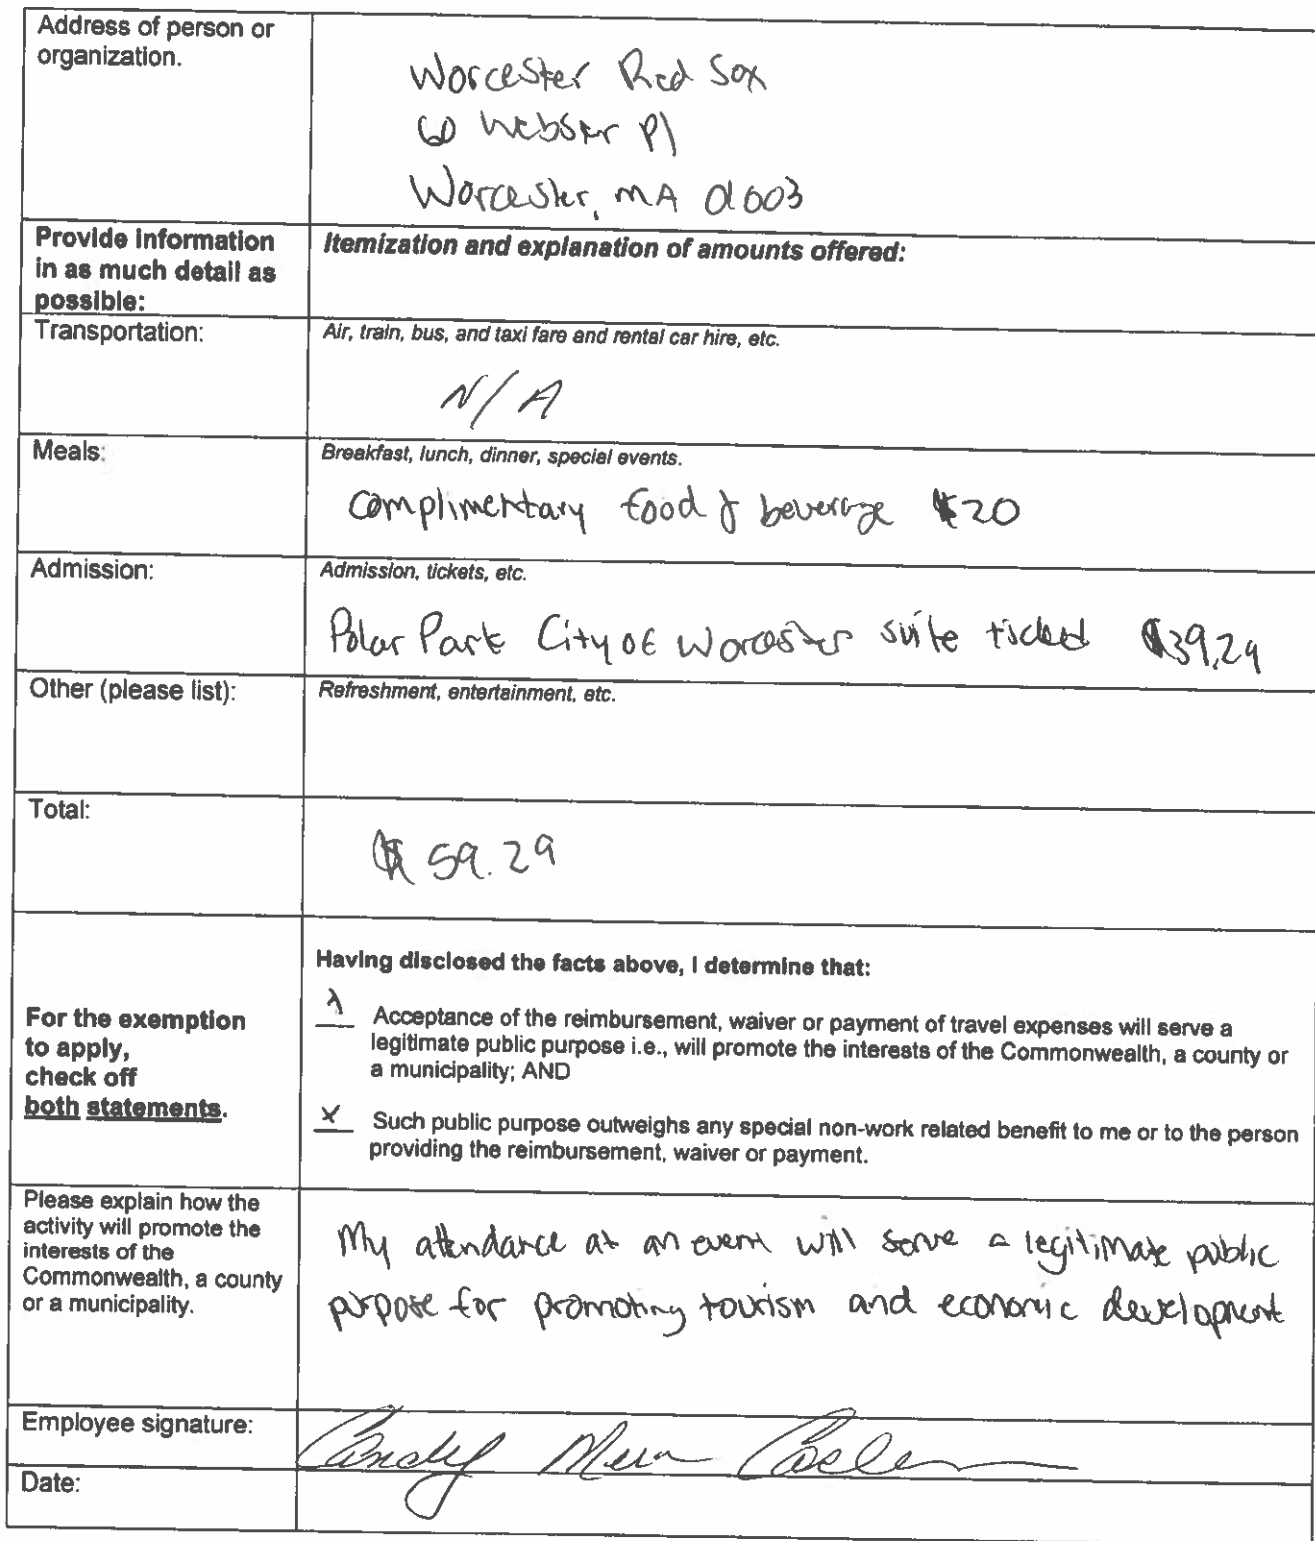 Address of person or
organization.
Worcester Red Sox
60 Webster Pl
Worcester, MA 01603
Provide information
in as much detail as
possible:
Itemization and explanation of amounts offered:
Transportation:
Air, train, bus, and taxi fare and rental car hire, etc.
N/A
Meals:
Breakfast, lunch, dinner, special events.
Complimentary food & beverage $20
Admission:
Admission, tickets, etc.
Polar Park City of Worcester suite ticket $39.29
Other (please list):
Refreshment, entertainment, etc.
Total:
$59.29
For the exemption
to apply,
check off
both statements.
Having disclosed the facts above, I determine that:
x Acceptance of the reimbursement, waiver or payment of travel expenses will serve a
legitimate public purpose i.e., will promote the interests of the Commonwealth, a county or
a municipality; AND
x Such public purpose outweighs any special non-work related benefit to me or to the person
providing the reimbursement, waiver or payment.
Please explain how the
activity will promote the
interests of the
Commonwealth, a county
or a municipality.
My attendance at an event will serve a legitimate public
purpose for promoting tourism and economic development
Employee signature:
Candy Mero Carlson
Date: